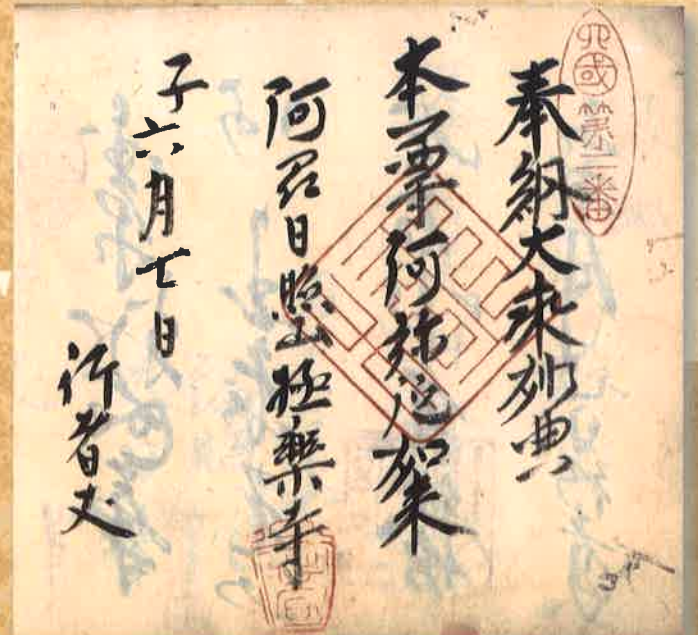 四國第二番
奉納大乗妙典
本尊阿弥陀如来
阿州日照山極樂寺
子六月七日
行者丈